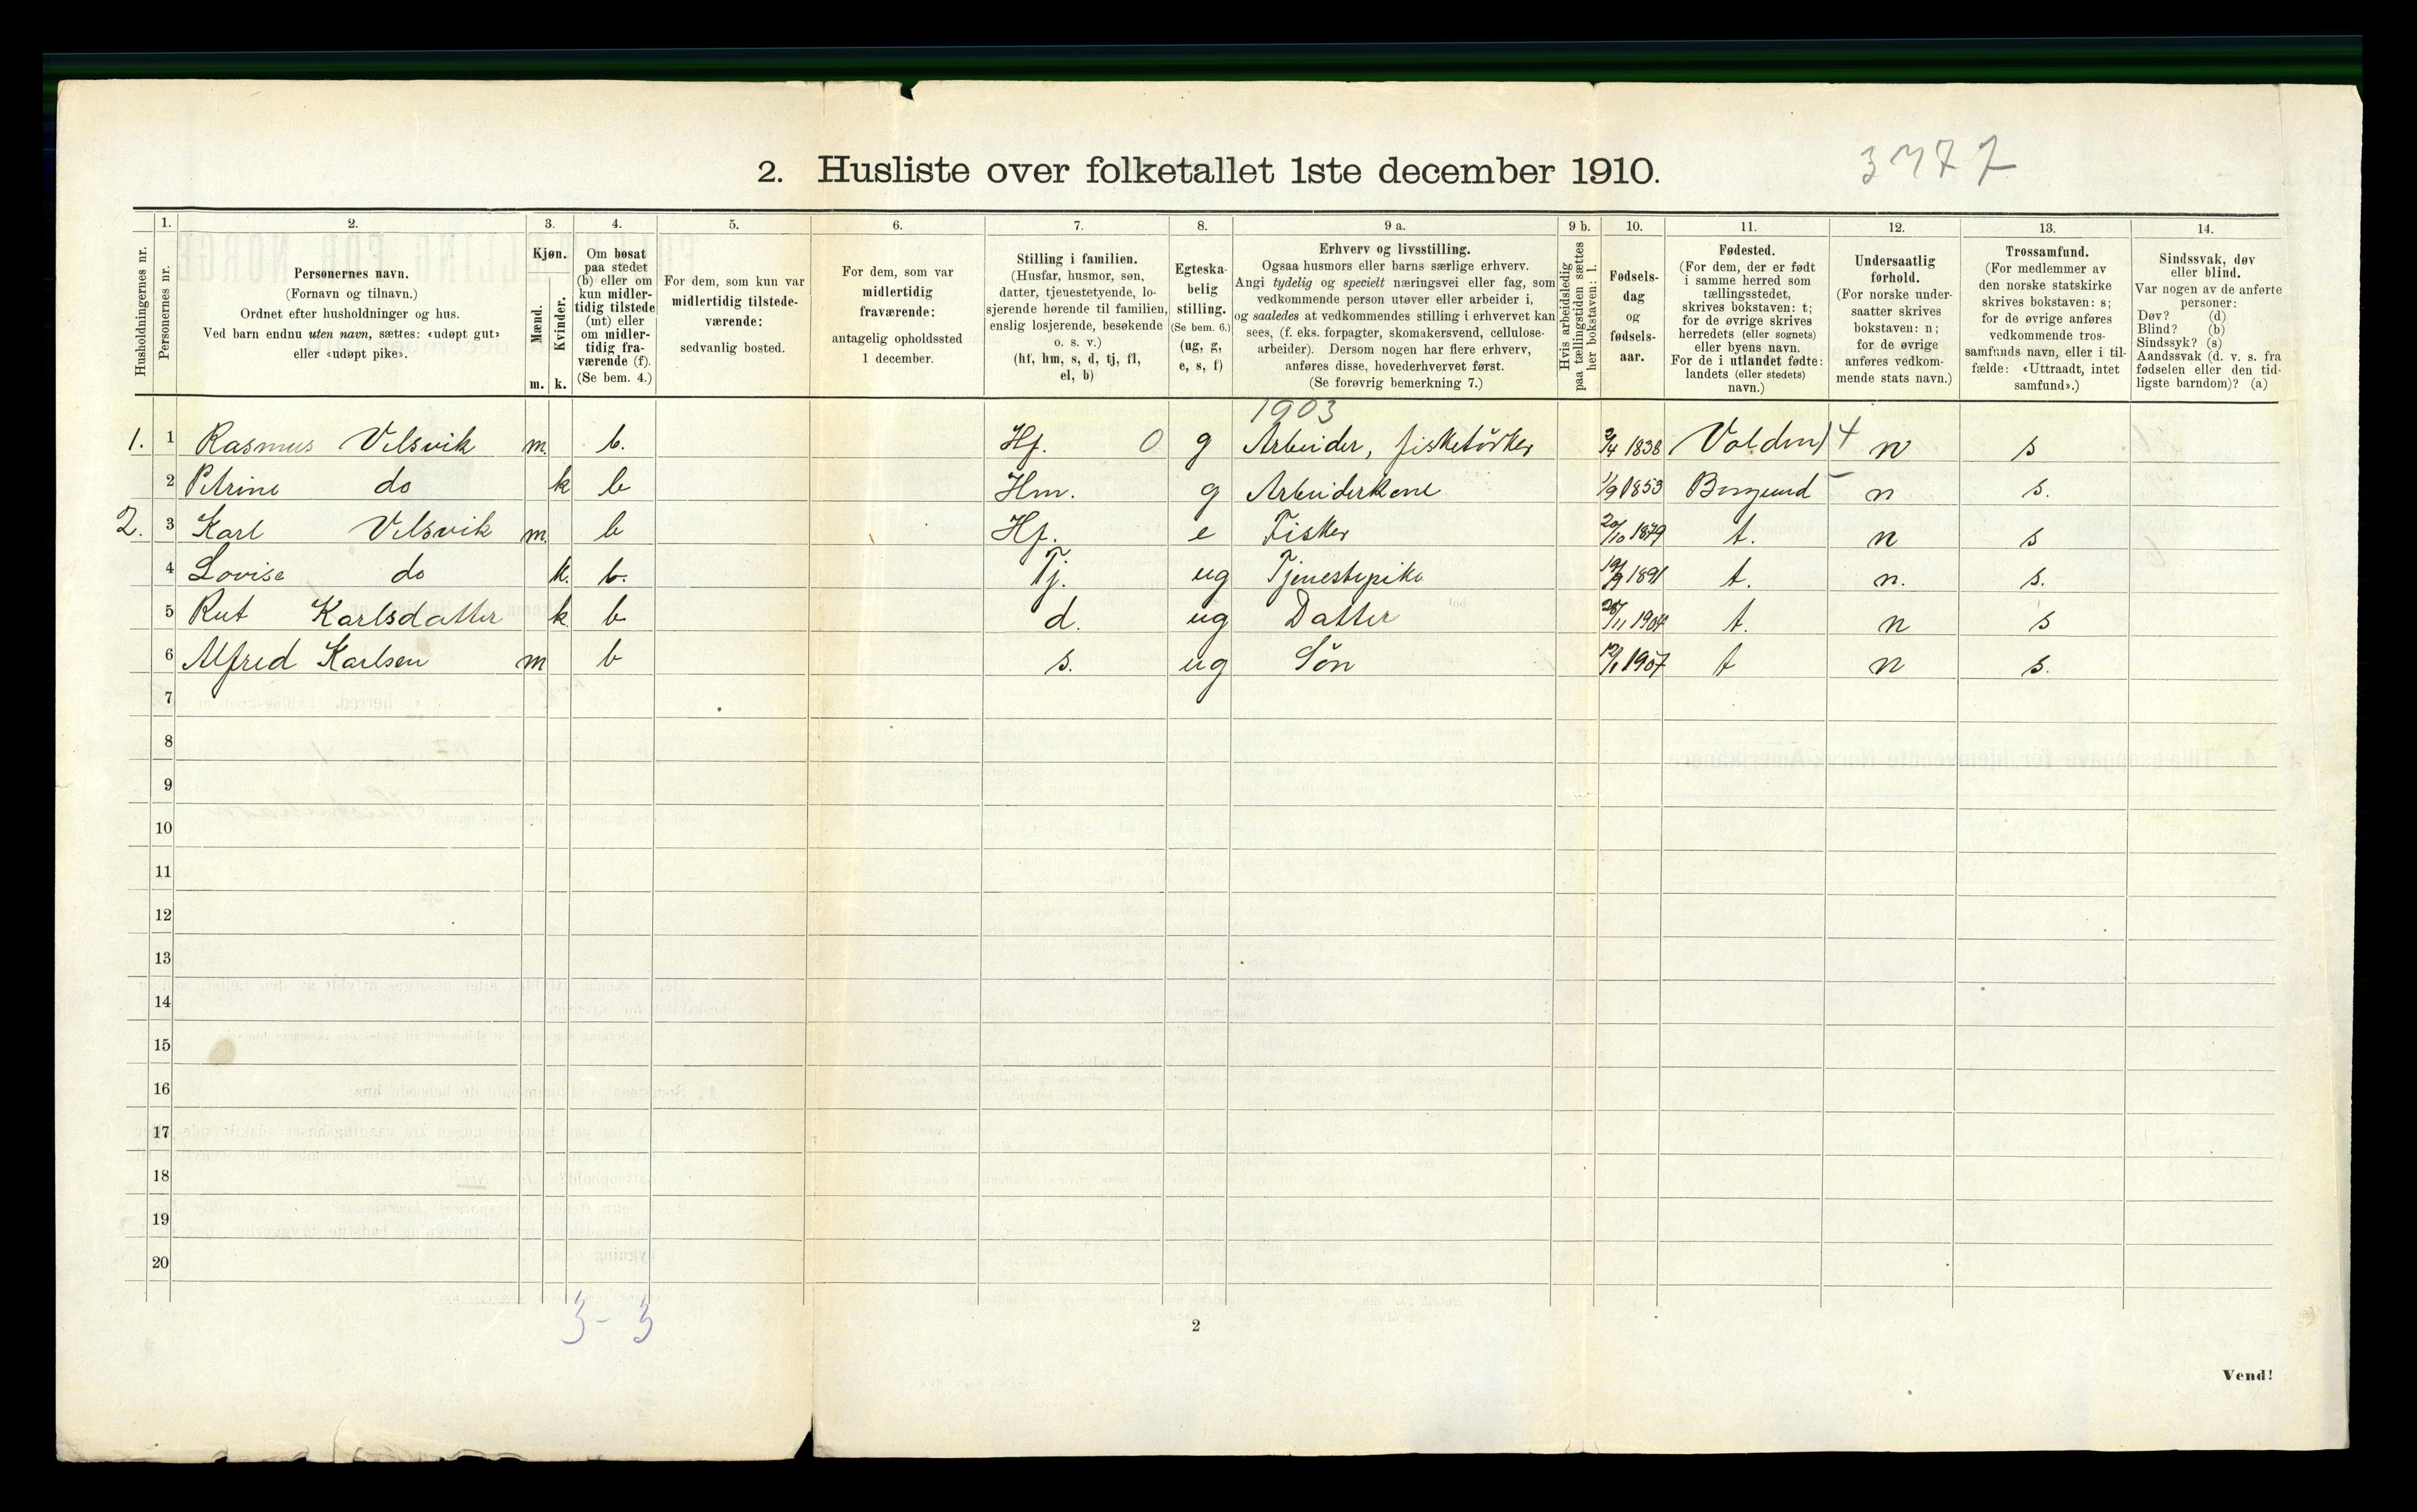 3777
2. Husliste over folketallet 1ste december 1910.
Husholdningernes nr.
1.
Personernes nr.
2.
Personernes navn.
(Fornavn og tilnavn.)
Ordnet efter husholdninger og hus.
Ved barn endnu uten navn, sættes: «udøpt gut»
eller «udøpt pike».
3.
Kjøn.
Mænd.
Kvinder.
m. k.
4.
Om bosat
paa stedet
(b) eller om
kun midler-
tidig tilstede
(mt) eller
om midler-
tidig fra-
værende (f).
(Se bem. 4.)
5.
For dem, som kun var
midlertidig tilstede-
værende:
sedvanlig bosted.
6.
For dem, som var
midlertidig
fraværende:
antagelig opholdssted
1 december.
7.
Stilling i familien.
(Husfar, husmor, søn,
datter, tjenestetyende, lo-
sjerende hørende til familien,
enslig losjerende, besøkende
o. s. v.)
(hf, hm, s, d, tj, fl,
el, b)
8.
Egteska-
belig
stilling.
(Se bem. 6.)
(ug, g,
e, s, f)
9 a.
Erhverv og livsstilling.
Ogsaa husmors eller barns særlige erhverv.
Angi tydelig og specielt næringsvei eller fag, som
vedkommende person utøver eller arbeider i,
og saaledes at vedkommendes stilling i erhvervet kan
sees, (f. eks. forpagter, skomakersvend, cellulose-
arbeider). Dersom nogen har flere erhverv,
anføres disse, hovederhvervet først.
(Se forøvrig bemerkning 7.)
9 b.
Hvis arbeidsledig
paa tællingstiden sættes
her bokstaven: l.
10.
Fødsels-
dag
og
fødsels-
aar.
11.
Fødested.
(For dem, der er født
i samme herred som
tællingsstedet,
skrives bokstaven: t;
for de øvrige skrives
herredets (eller sognets)
eller byens navn.
For de i utlandet fødte:
landets (eller stedets)
navn.)
12.
Undersaatlig
forhold.
(For norske under-
saatter skrives
bokstaven: n;
for de øvrige
anføres vedkom-
mende stats navn.)
13.
Trossamfund.
(For medlemmer av
den norske statskirke
skrives bokstaven: s;
for de øvrige anføres
vedkommende tros-
samfunds navn, eller i til-
fælde: «Uttraadt, intet
samfund».)
14.
Sindssvak, døv
eller blind.
Var nogen av de anførte
personer:
Døv? (d)
Blind? (b)
Sindssyk? (s)
Aandssvak (d. v. s. fra
fødselen eller den tid-
ligste barndom)? (a)
1903
1. 1 Rasmus Velsvik m. b. Hf. 0 g Arbeider, fisketörker 2/4 1838 Volden 4 n s
2 Petrine do k b Hm. g Arbeiderkone 1/9 1853 Borgund n s.
2. 3 Karl Velsvik m. b Hf. e Fisker 20/10 1879 t. n s
4 Lovise do k. b. Tj. ug Tjenestepike 1891 t. n. s.
5 Rut Karlsdatter k b d. ug Datter 1904 t. n s
6 Alfred Karlsen m b s. ug Søn 1907 t n s.
7
8
9
10
11
12
13
14
15
16
17
18
19
20
3 - 3
2
Vend!